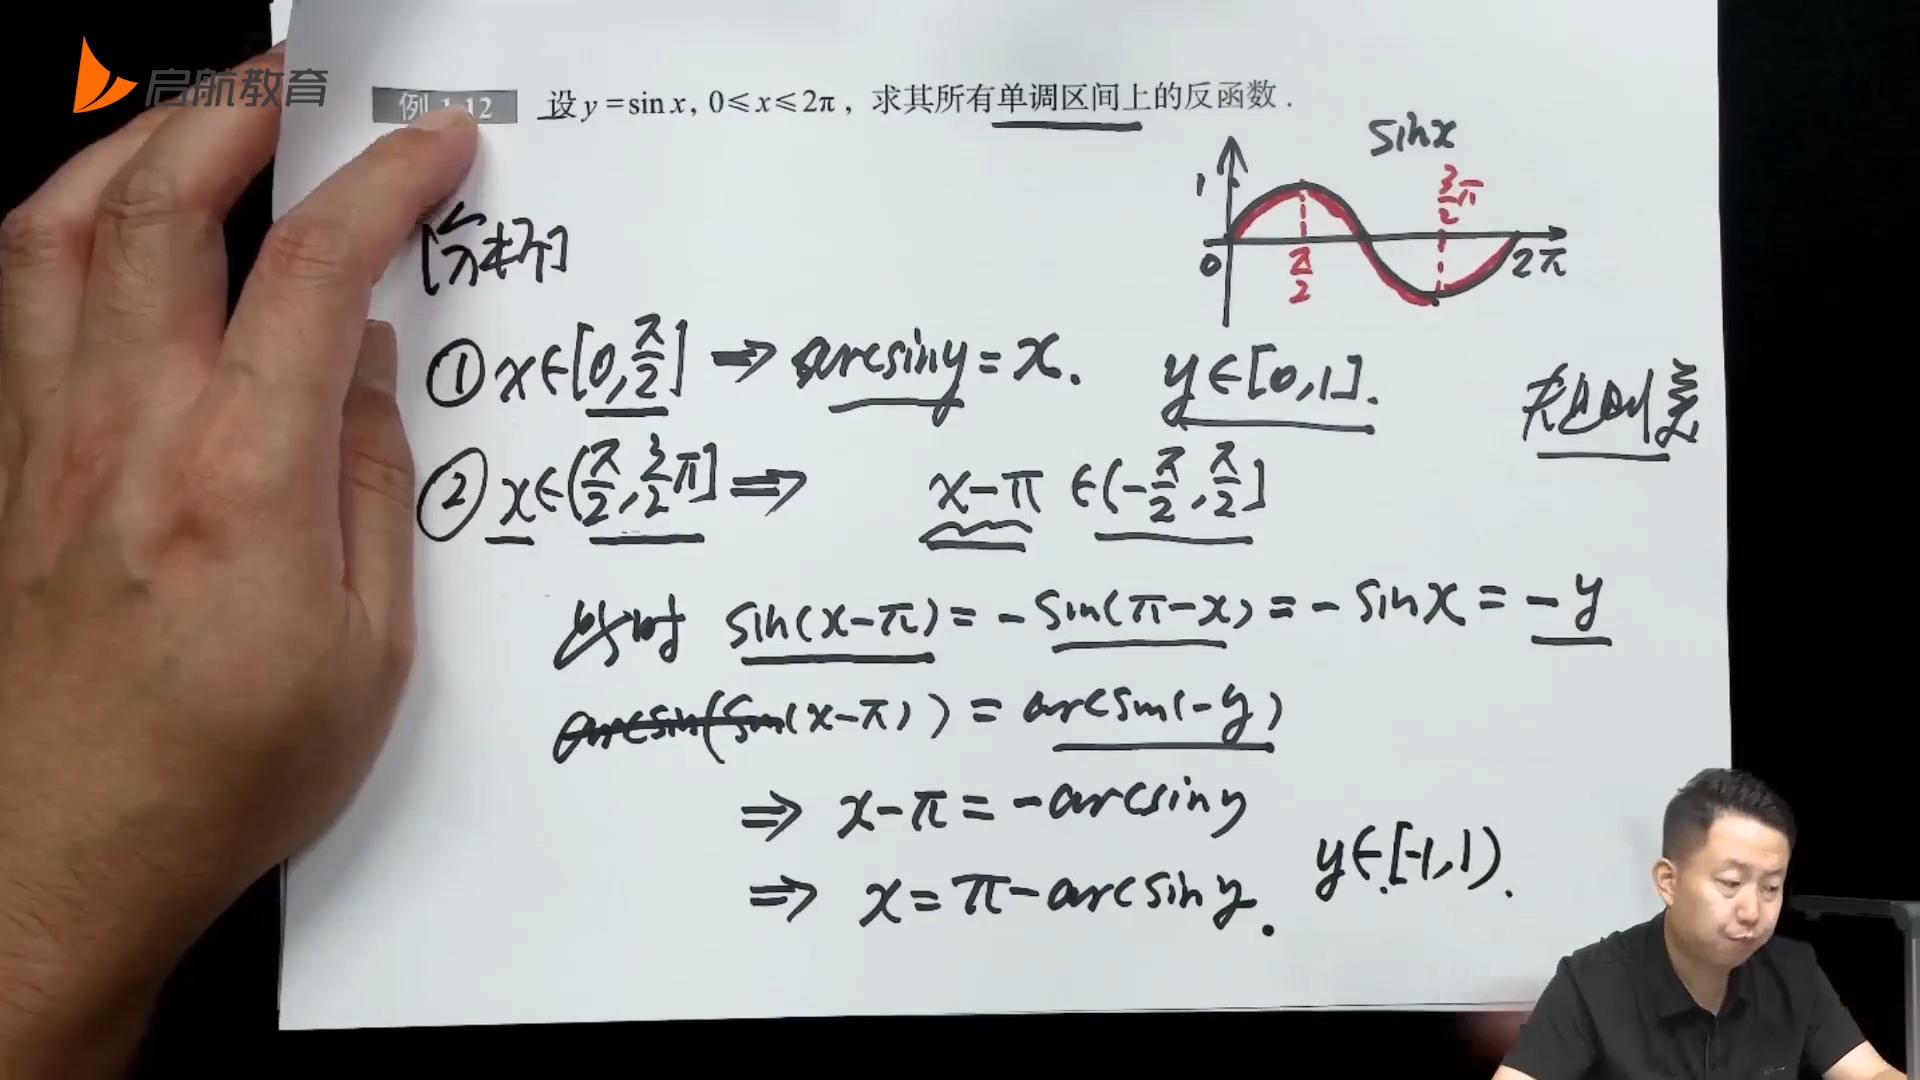 启航教育
例 1.12 设 y = sin x, 0 ⩽ x ⩽ 2π, 求其所有单调区间上的反函数.
sinx
1
3/2 π
0
π/2
2π
[分析]
① x∈[0, π/2] ⇒ arcsiny = x. y∈[0,1].
② x∈(π/2, 3/2 π] ⇒ x-π ∈(-π/2, π/2]
此时 sin(x-π) = -sin(π-x) = -sinx = -y
arcsin(sin(x-π)) = arcsin(-y)
⇒ x-π = -arcsiny
⇒ x = π-arcsiny. y∈[-1,1).